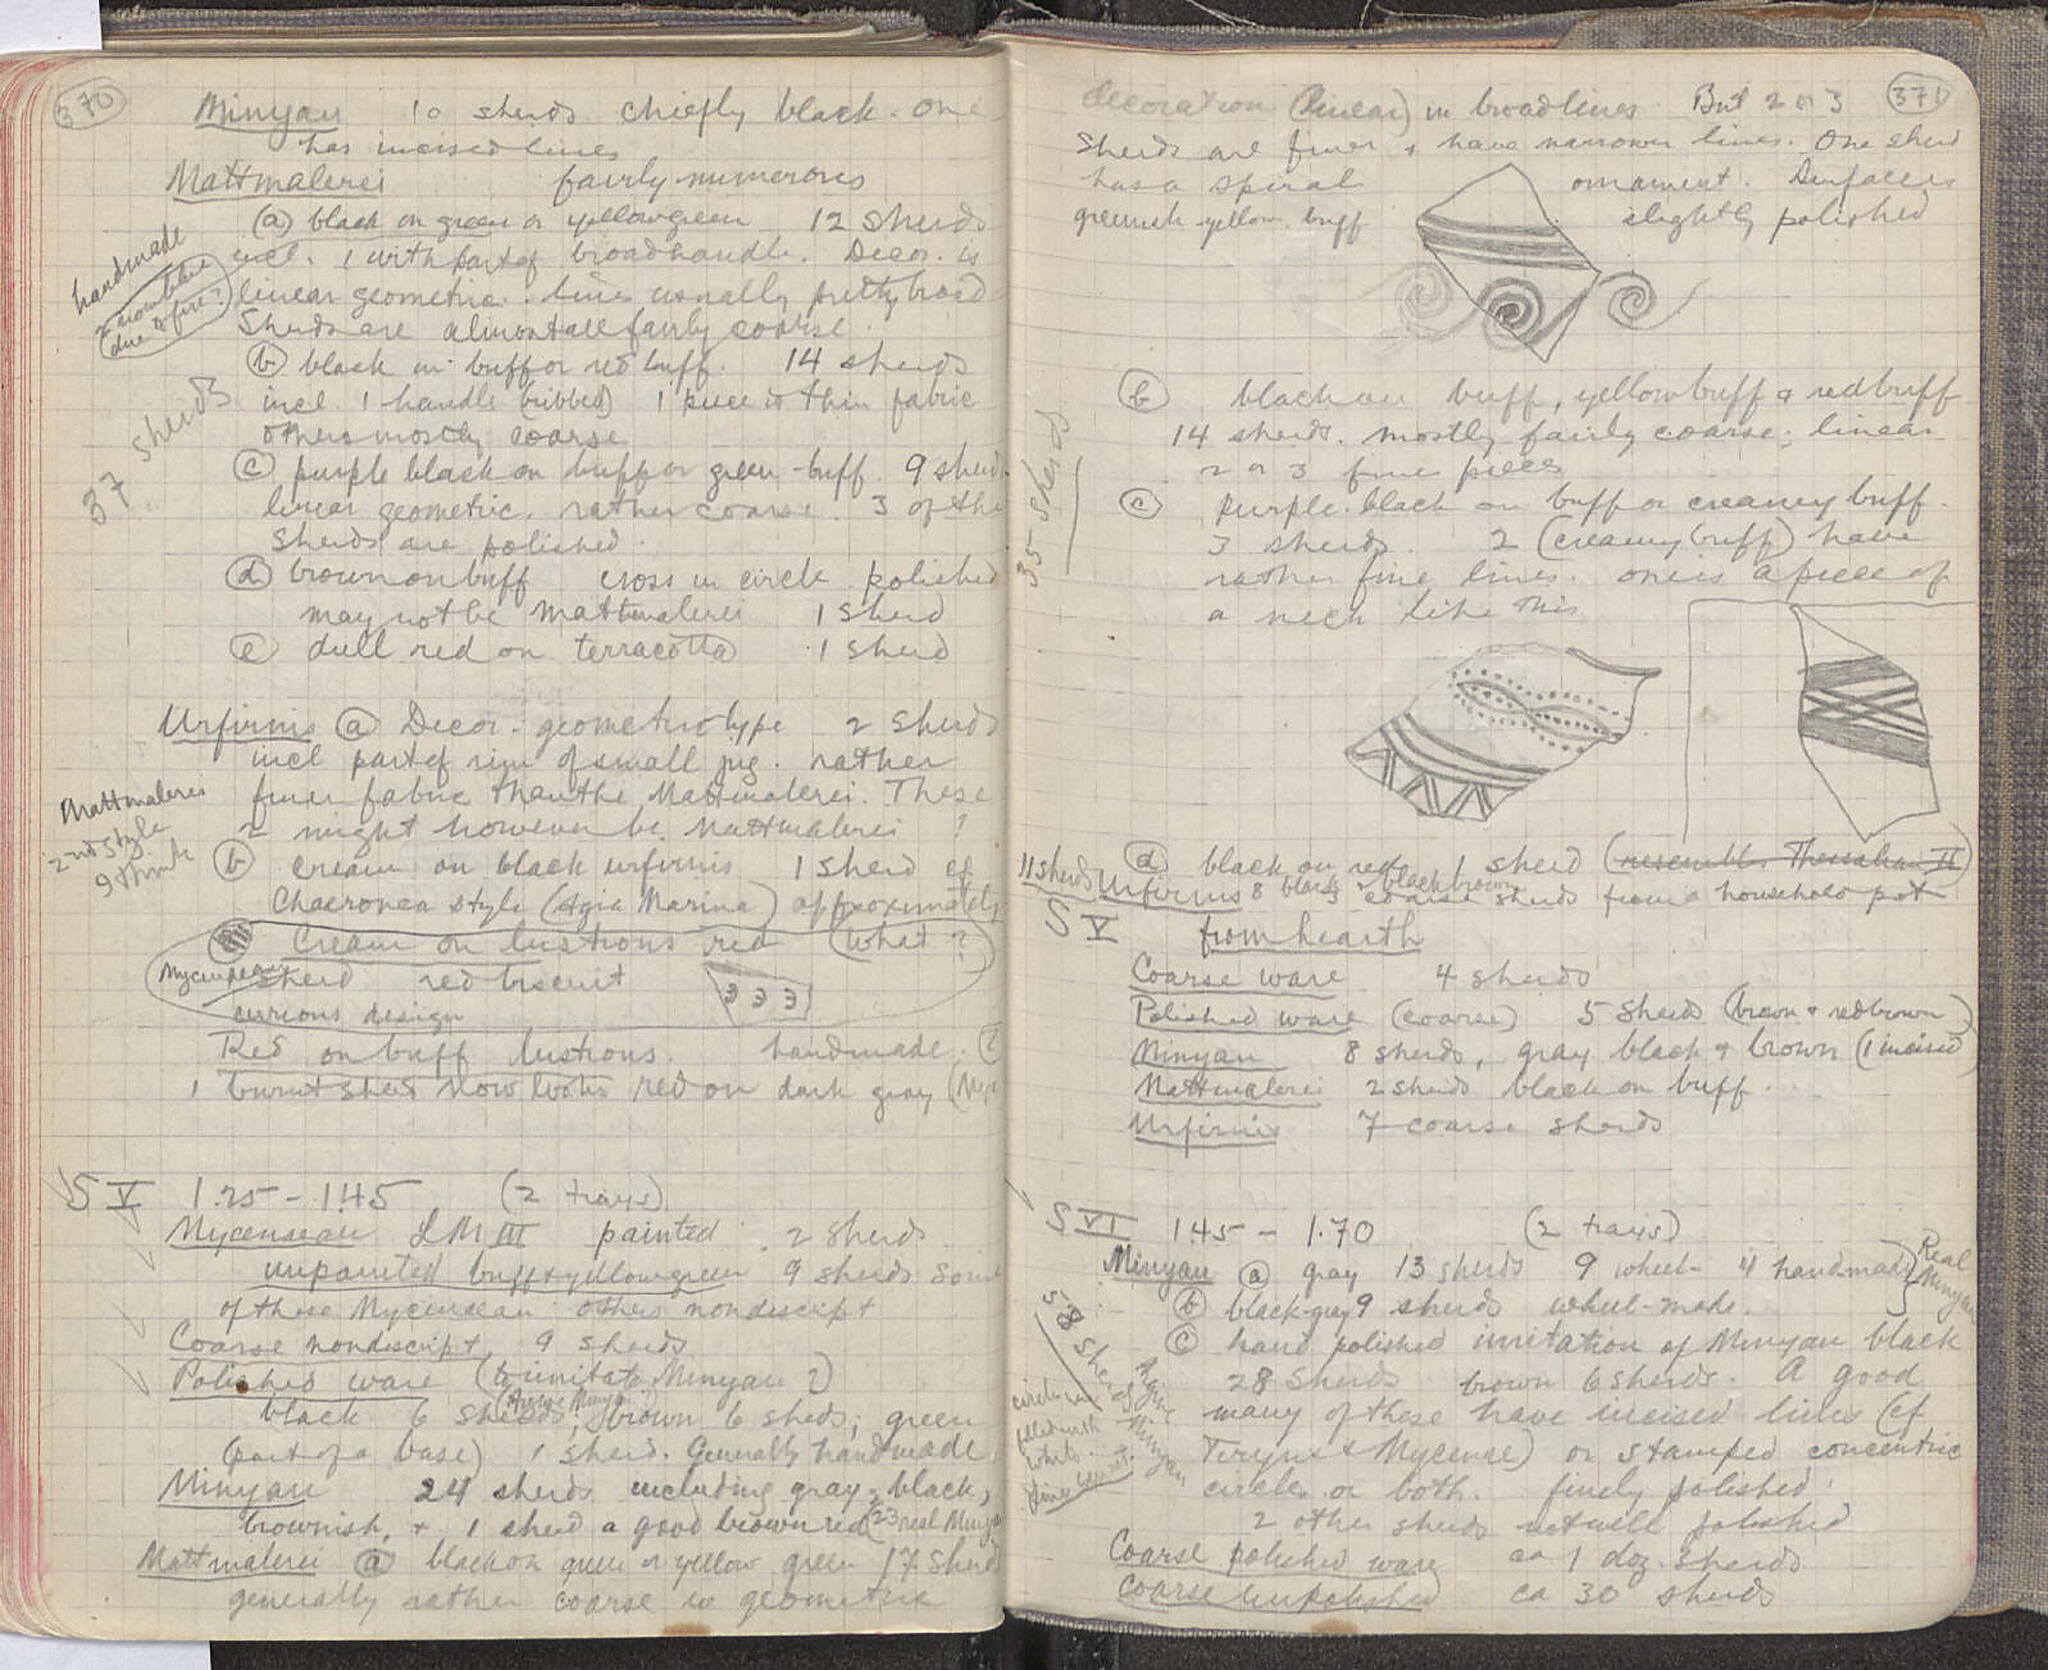 370
Minyan 10 sherds chiefly black. One
has incised lines
Mattmalerei fairly numerous
(a) black on green or yellowgreen 12 sherds
incl. 1 with part of broad handle. Decor. is
linear geometric. lines usually pretty broad
Sherds are almost all fairly coarse.
handmade
due to fire?
(b) black on buff or red buff. 14 sherds
incl. 1 handle (ribbed) 1 piece is thin fabric
others mostly coarse
37 sherds
(c) purple black on buff or green-buff 9 sherds
linear geometric. rather coarse. 3 of the
Sherds are polished.
(d) brown on buff cross in circle polished
may not be Mattmalerei 1 sherd
(e) dull red on terracotta 1 sherd
Urfirnis (a) Decor. geometric type 2 sherds
incl part of rim of small jug. rather
finer fabric than the Mattmalerei. These
2 might however be Mattmalerei ?
Mattmalerei
2nd style
I think
(b) cream on black urfirnis 1 sherd cf
Chaeronea style (Agia Marina) approximately
Cream on lustrous red (what?
Mycenaean
sherd red biscuit
curious design
Red on buff lustrous. handmade.
1 burnt sherd now looks red on dark gray
S V 1.25 - 1.45 (2 trays)
Mycenaean LM III painted. 2 sherds
unpainted buff & yellowgreen 9 sherds some
of these Mycenaean others nondescript
Coarse nondescript, 9 sherds
Polished ware (to imitate Minyan?)
black 6 sherds, brown 6 sherds; green
(part of a base) 1 sherd. Generally handmade
Minyan 24 sherds including gray, black,
brownish, + 1 sherd a good brown red (23 real Minyan
Mattmalerei (a) black on green or yellow green 17 sherds
generally rather coarse in geometric
371
decoration (linear) in broad lines But 2 or 3
Sherds are finer + have narrower lines. One sherd
has a spiral ornament. Surface is
greenish-yellow buff slightly polished
(b) black on buff, yellow buff & red buff
14 sherds. mostly fairly coarse; linear
2 or 3 fine pieces
35 sherds
(c) purple-black on buff or creamy buff.
3 sherds. 2 (creamy buff) have
rather fine lines. one is a piece of
a neck like this
(d) black on red 1 sherd (resembles Thessalian II)
11 sherds Urfirnis 8 black & blackbrown
3 coarse sherds from a household pot
S V from hearth
Coarse ware 4 sherds
Polished ware (coarse) 5 sherds (brown + redbrown)
Minyan 8 sherds, gray black & brown (1 incised
Mattmalerei 2 sherds black on buff.
Urfirnis 7 coarse sherds
S VI 1.45 - 1.70 (2 trays)
Minyan (a) gray 13 sherds 9 wheel- 4 handmade
Real
Minyan
(b) black-gray 9 sherds wheel-made.
(c) hand polished imitation of Minyan black
28 sherds brown 6 sherds. A good
many of these have incised lines (cf
Tiryns & Mycenae) or stamped concentric
circles or both. finely polished.
2 other sherds not well polished
58 sherds
Argive Minyan
circles
filled with
white.
Coarse polished ware ca 1 doz. sherds
Coarse unpolished ca 30 sherds